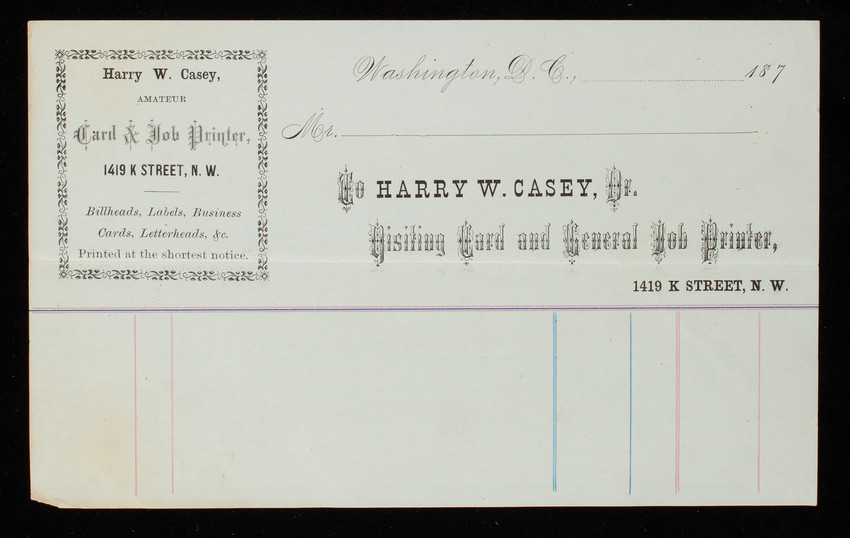 Harry W. Casey,
AMATEUR
Card & Job Printer,
1419 K STREET, N. W.
Billheads, Labels, Business
Cards, Letterheads, &c.
Printed at the shortest notice.
Washington, D. C., 187
Mr.
To HARRY W. CASEY, Dr.
Visiting Card and General Job Printer,
1419 K STREET, N. W.